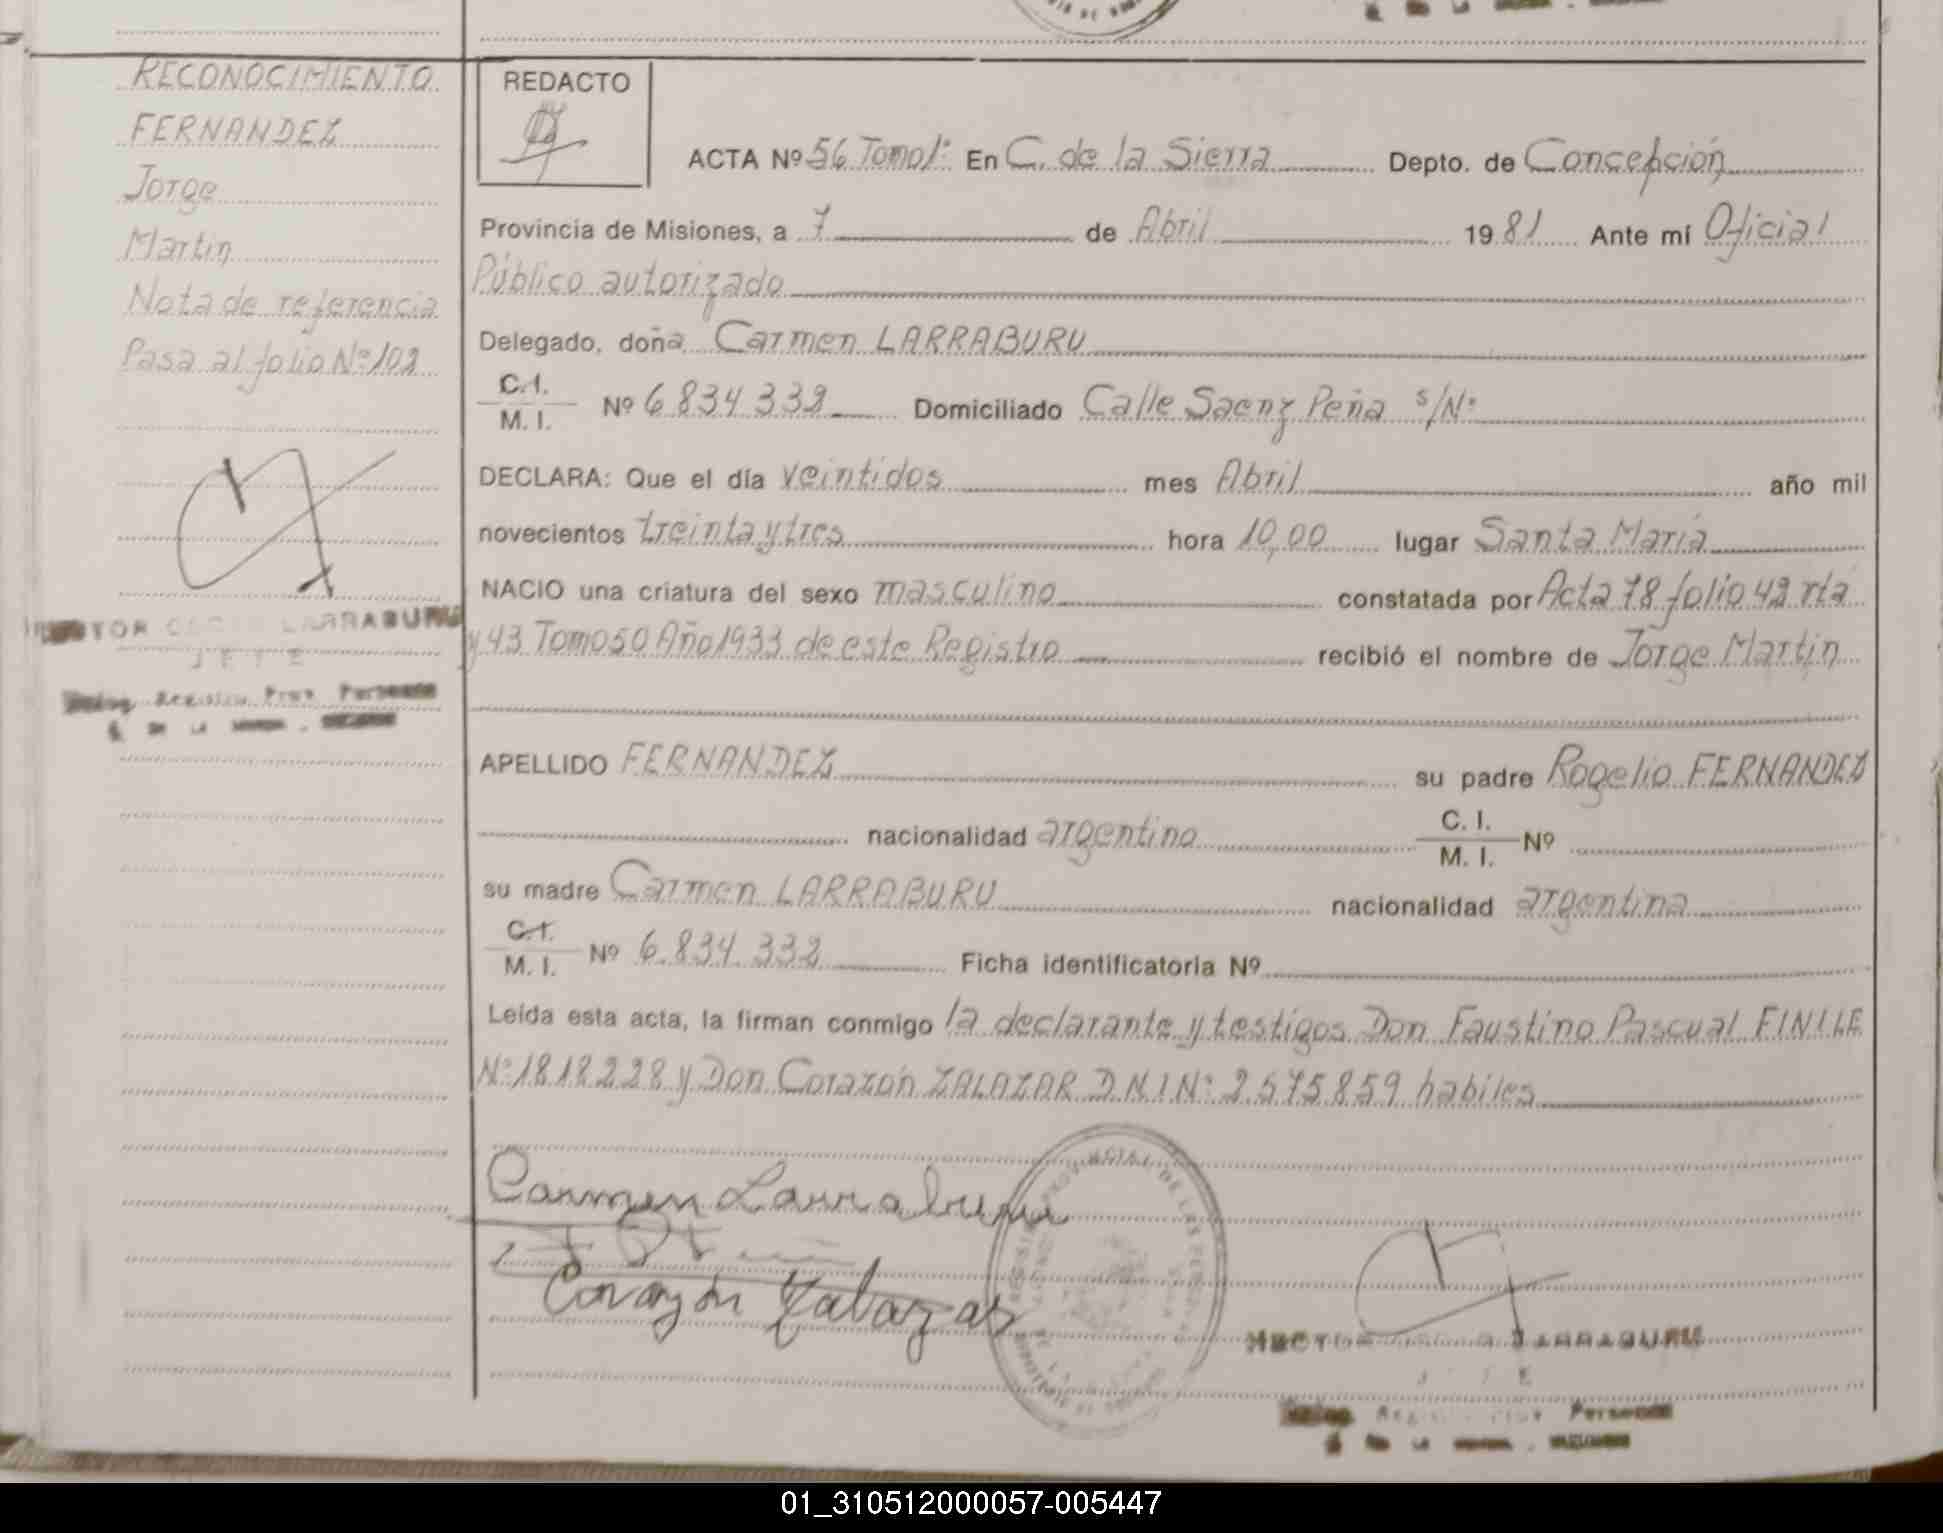 RECONOCIMIENTO
FERNANDEZ
Jorge
Martin
Nota de referencia
Pasa al folio Nº 102
LARRABURU
JEFE
Registro Prov. Personas
DE LA
REDACTO
ACTA Nº 56 Tomo 1º En C. de la Sierra Depto. de Concepción
Provincia de Misiones, a 7 de Abril 1981 Ante mí Oficial
Público autorizado
Delegado, doña Carmen LARRABURU
C.I. M.I. Nº 6.834.332 Domiciliado Calle Saenz Peña s/Nº
DECLARA: Que el día veintidos mes Abril año mil
novecientos treinta y tres hora 10,00 lugar Santa María
NACIO una criatura del sexo masculino constatada por Acta 78 folio 42 vta
y 43 Tomo 50 Año 1933 de este Registro recibió el nombre de Jorge Martin
APELLIDO FERNANDEZ su padre Rogelio FERNANDEZ
nacionalidad argentino C.I. M.I. Nº
su madre Carmen LARRABURU nacionalidad argentina
C.I. M.I. Nº 6.834.332 Ficha identificatoria Nº
Leída esta acta, la firman conmigo la declarante y testigos Don Faustino Pascual FINI LE
Nº 1818228 y Don Corazón ZALAZAR D.N.I Nº 2.575.859 habiles
Carmen Larraburu
Corazón Zalazar
HECTOR LARRABURU
Personas
01_310512000057-005447